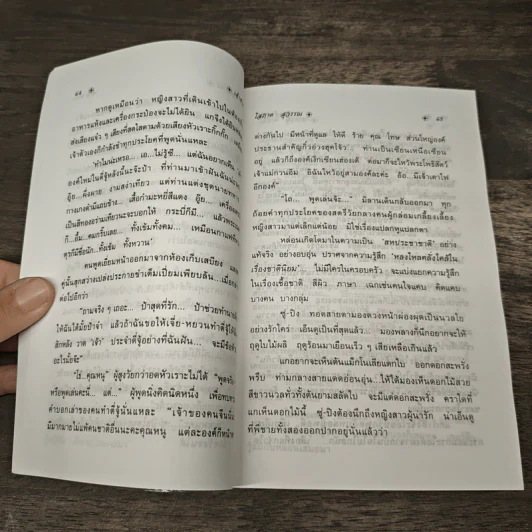 ๖๔
หากดูเหมือนว่า หญิงสาวที่เดินเข้าไปใน
อาหารแห้งและเครื่องกระป๋องจะไม่ได้ยิน แกจึงได้ยิน
ส่งเสียงแจ๋ว ๆ เสียงที่สดใสตามด้วยเสียงหัวเราะกิ๊กกั๊ก
เจ้าตัวเองก็กำลังขำทุกประโยคที่พูดนั่นแหละ
"ทำไมน่ะเหรอ... เอ...ไม่รู้ซี... แต่ฉันอยากเห็น
องค์ไหนในตี่จู้องค์นั้นนะจ๊ะป้า ที่ท่านมาเข้าฝันฉัน
อู๊ย...ผึ่งผาย งามสง่าเชียว แต่ท่านแต่งชุดนายทหาร
กางเกงดำมีแถบข้าง... เสื้อกำมะหยี่สีแดง อู๊ย...เครื่อง
เป็นสีทองอร่ามเทียวนะจะบอกให้ กระบี่ก็มี... แล้ว
ก็...อื้อ...คมกริบเลย... ทั้งเข้มทั้งคม... เหมือนกามเทพ
ดุก็มีชื่อนัก...ทั้งเข้ม ทั้งหวาน"
คนพูดเยี่ยมหน้าออกมาจากห้องเก็บเสบียง และ
คู่นั้นสุกสว่างเปล่งประกายขำเต็มเปี่ยมเพียบล้น...เมื่อ
ต่อไปอีกว่า
"ถามจริง ๆ เถอะ... ป้าสุดที่รัก... ป้าช่วยทำนาย
ให้ฉันได้มั้ยป้าจ๋า แล้วถ้าฉันขอให้เจี่ย-หยวนทำตี่จู้ให้
สักหลัง วาด 'เจ้า' ประจำตี่จู้อย่างที่ฉันฝัน... จะมีข้อ
อะไรมั้ยจ๊ะ"
"โธ่...คุณหนู" ผู้สูงวัยกว่าอดหัวเราะไม่ได้ "พูดจริง
หรือพูดเล่นคะนี่... แต่..." ผู้พูดนิ่งคิดนิดหนึ่ง เพื่อทบทวน
คำบอกเล่าของคนทำตี่จู้นั่นแหละ "เจ้าของคนจีนนั้น
มีมากมายไม่แพ้คนชาติอื่นนะคะคุณหนู แต่ละองค์ก็
โสภาค สุวรรณ ๖๕
ต่างกันไป มีหน้าที่ดูแล ให้ดี ร้าย คุณ โทษ ส่วนใหญ่องค์
ประธานสำคัญก็ว่าฮ่วงสุดโจ้ว... ท่านเป็นเซียนเหนือเซียน
อยู่ แล้วก็ถึงองค์เง็กเซียนฮ่องเต้ ต่อมาก็จะไหว้พระโพธิสัตว์
เจ้าแม่กวนอิม อิฉันไหว้อยู่สามองค์ละค่ะ อ้อ...มีเจ้าเตาไฟ
อีกองค์"
"โถ... พูดเล่นจ้ะ..." มีลานเดินกลับออกมา ทุก
ถ้อยคำทุกประโยคของสตรีวัยกลางคนผู้กล่อมเกลี้ยงเลี้ยง
หญิงสาวมาแต่เล็กแต่น้อย มิใช่เรื่องแปลกหูแปลกตา
หล่อนเกิดโตมาในความเป็น "สหประชาชาติ" อย่าง
แท้จริง อย่างอบอุ่น ปราศจากความรู้สึก "หลงใหลคลั่งไคล้ใน
เรื่องชาตินิยม" ไม่มีใครในครอบครัว จะแบ่งแยกความรู้สึก
ในเรื่องเชื้อชาติ สีผิว ภาษา เฉกเช่นคนใจแคบ คิดแคบ
บางคน บางกลุ่ม
ซู่-ปิง ทอดสายตามองดวงหน้าผ่องผุดเป็นนวลใย
อย่างรักใคร่ เอ็นดูเป็นที่สุดแล้ว... มองพลางก็นึกอยากจะให้
ฤดูใบไม้ผลิ ฤดูร้อนมาเยือนเร็ว ๆ เสียเหลือเกินแล้ว
แกอยากจะเห็นต้นแม็กโนเลียแตกใบ ออกดอกสะพรั่ง
พรึบ ท่ามกลางสายแดดอ่อนอุ่น...ให้ได้มองเห็นดอกไม้สวย
สีขาวนวลทั่วทั้งต้นยามสลัดใบ จะมีแต่ดอกสะพรั่ง คราใดที่
แกเห็นดอกไม้นี้ ซู่-ปิงต้องนึกถึงหญิงสาวผู้น่ารัก น่าเอ็นดู
ที่พี่ชายทั้งสองออกปากอยู่นั่นแล้วว่า